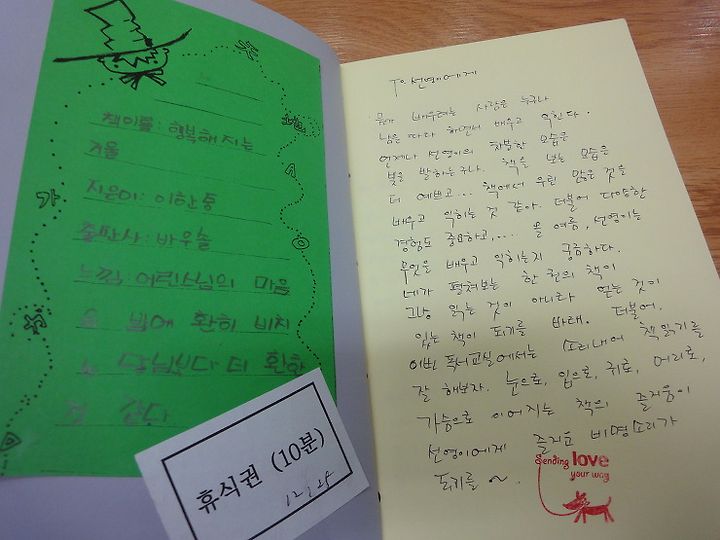 책이름: 행복해지는
거울
지은이: 이한중
출판사: 바우솔
느낌: 어린스님의 마음
은 밤에 환히 비치
는 달님보다 더 환한
것 같다
가
휴식권 (10분)
12.24
To 선영이에게
뭔가 배우려는 사람은 누구나
남을 따라 하면서 배우고 익힌다.
언제나 선영이의 차분한 모습은
빛을 발하는구나. 책을 보는 모습은
더 예쁘고... 책에서 우린 많은 것을
배우고 익히는 것 같아. 더불어 다양한
경험도 중요하고,... 올 여름, 선영이는
무엇을 배우고 익히는지 궁금하다.
네가 펼쳐보는 한 권의 책이
그냥 읽는 것이 아니라 얻는 것이
있는 책이 되기를 바래. 더불어,
이번 독서교실에서는 소리내어 책읽기를
잘 해보자. 눈으로, 입으로, 귀로, 머리로,
가슴으로 이어지는 책의 즐거움이
선영이에게 즐거운 비명소리가
되기를 ~.
sending love
your way